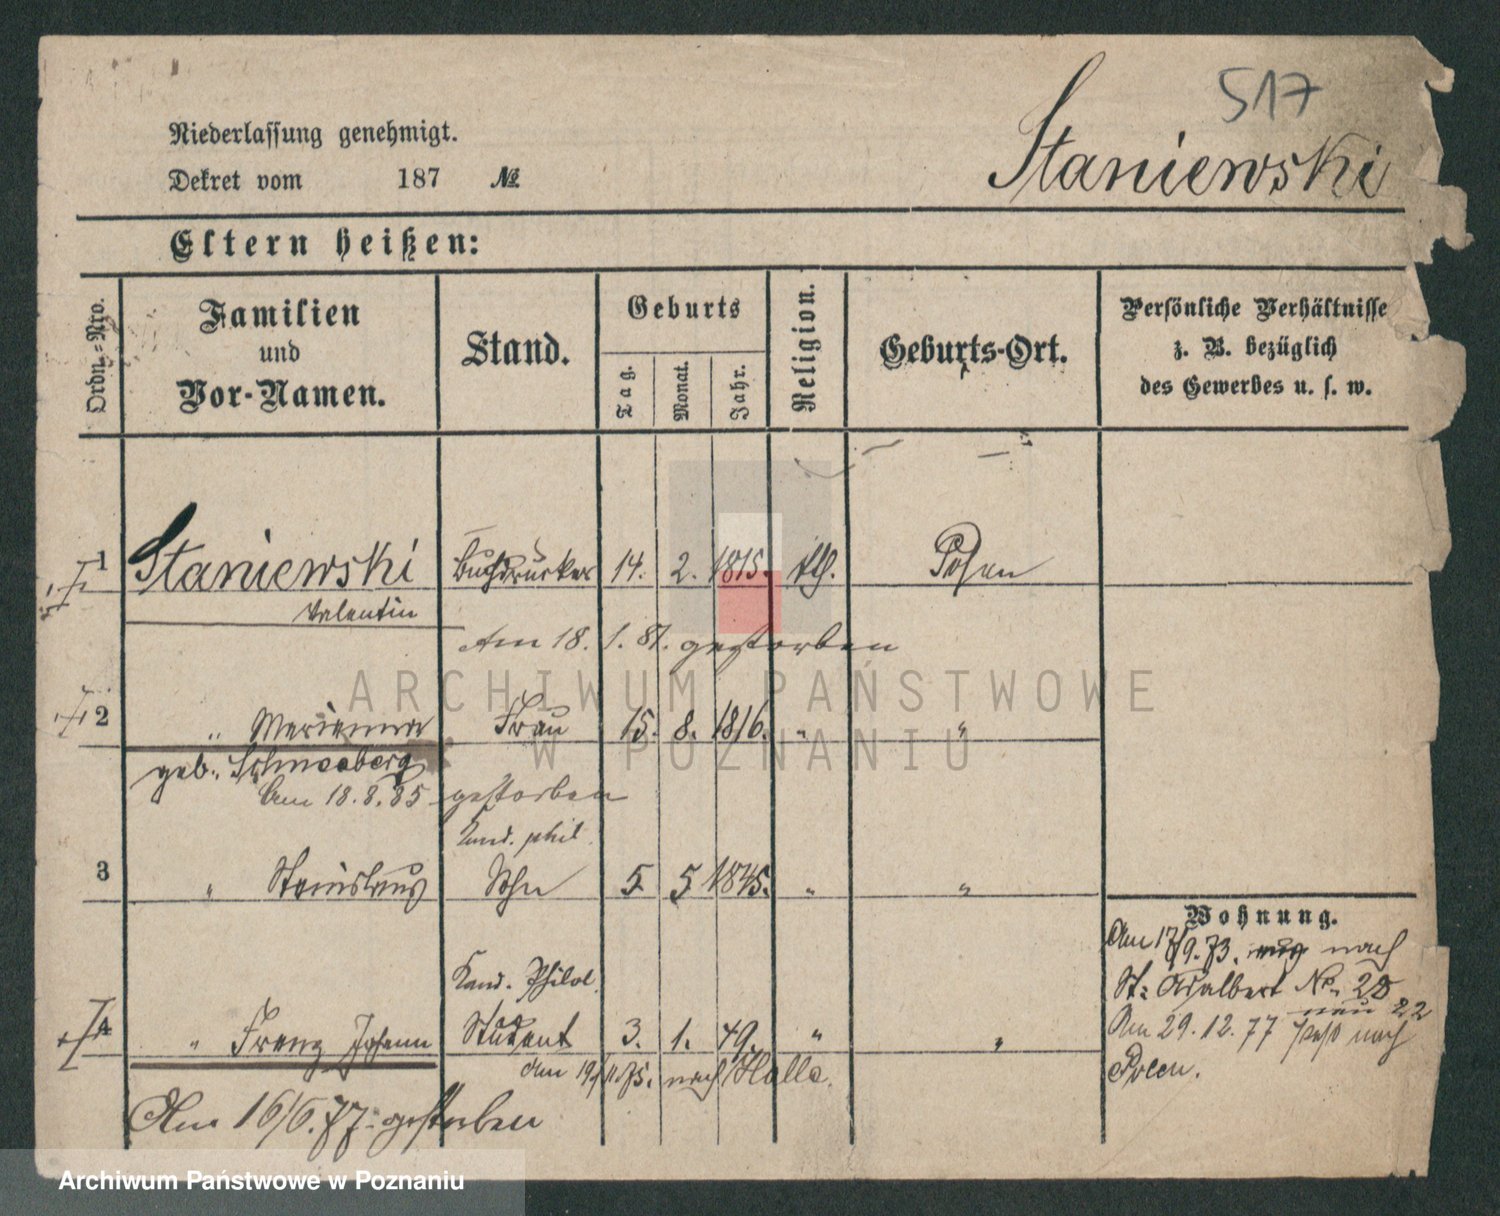 517
Niederlassung genehmigt.
Dekret vom 187 №
Staniewski
Eltern heißen:
Ordn.-Nro.
Familien
und
Vor-Namen.
Stand.
Geburts
Tag.
Monat.
Jahr.
Religion.
Geburts-Ort.
Persönliche Verhältnisse
z. B. bezüglich
des Gewerbes u. s. w.
1 Staniewski Buchdrucker 14. 2. 1815. kth. Posen
Valentin
Am 18. 1. 81. gestorben
ARCHIWUM PAŃSTWOWE
W POZNANIU
2 " Marianna Frau 15. 8. 1816. " "
geb. Schneeberg
Am 18. 8. 85 gestorben
Kand. phil.
3 " Stanislaus Sohn 5. 5. 1845. " "
Wohnung.
Am 17/9. 73. nach
St: Adalbert No. 28
neu 22
Am 29. 12. 77 nach
Polen.
Kand. Philol.
4 " Franz Johann Student 3. 1. 49. " "
den 19/11. 75. nach Halle.
Am 16/6. 77. gestorben
Archiwum Państwowe w Poznaniu